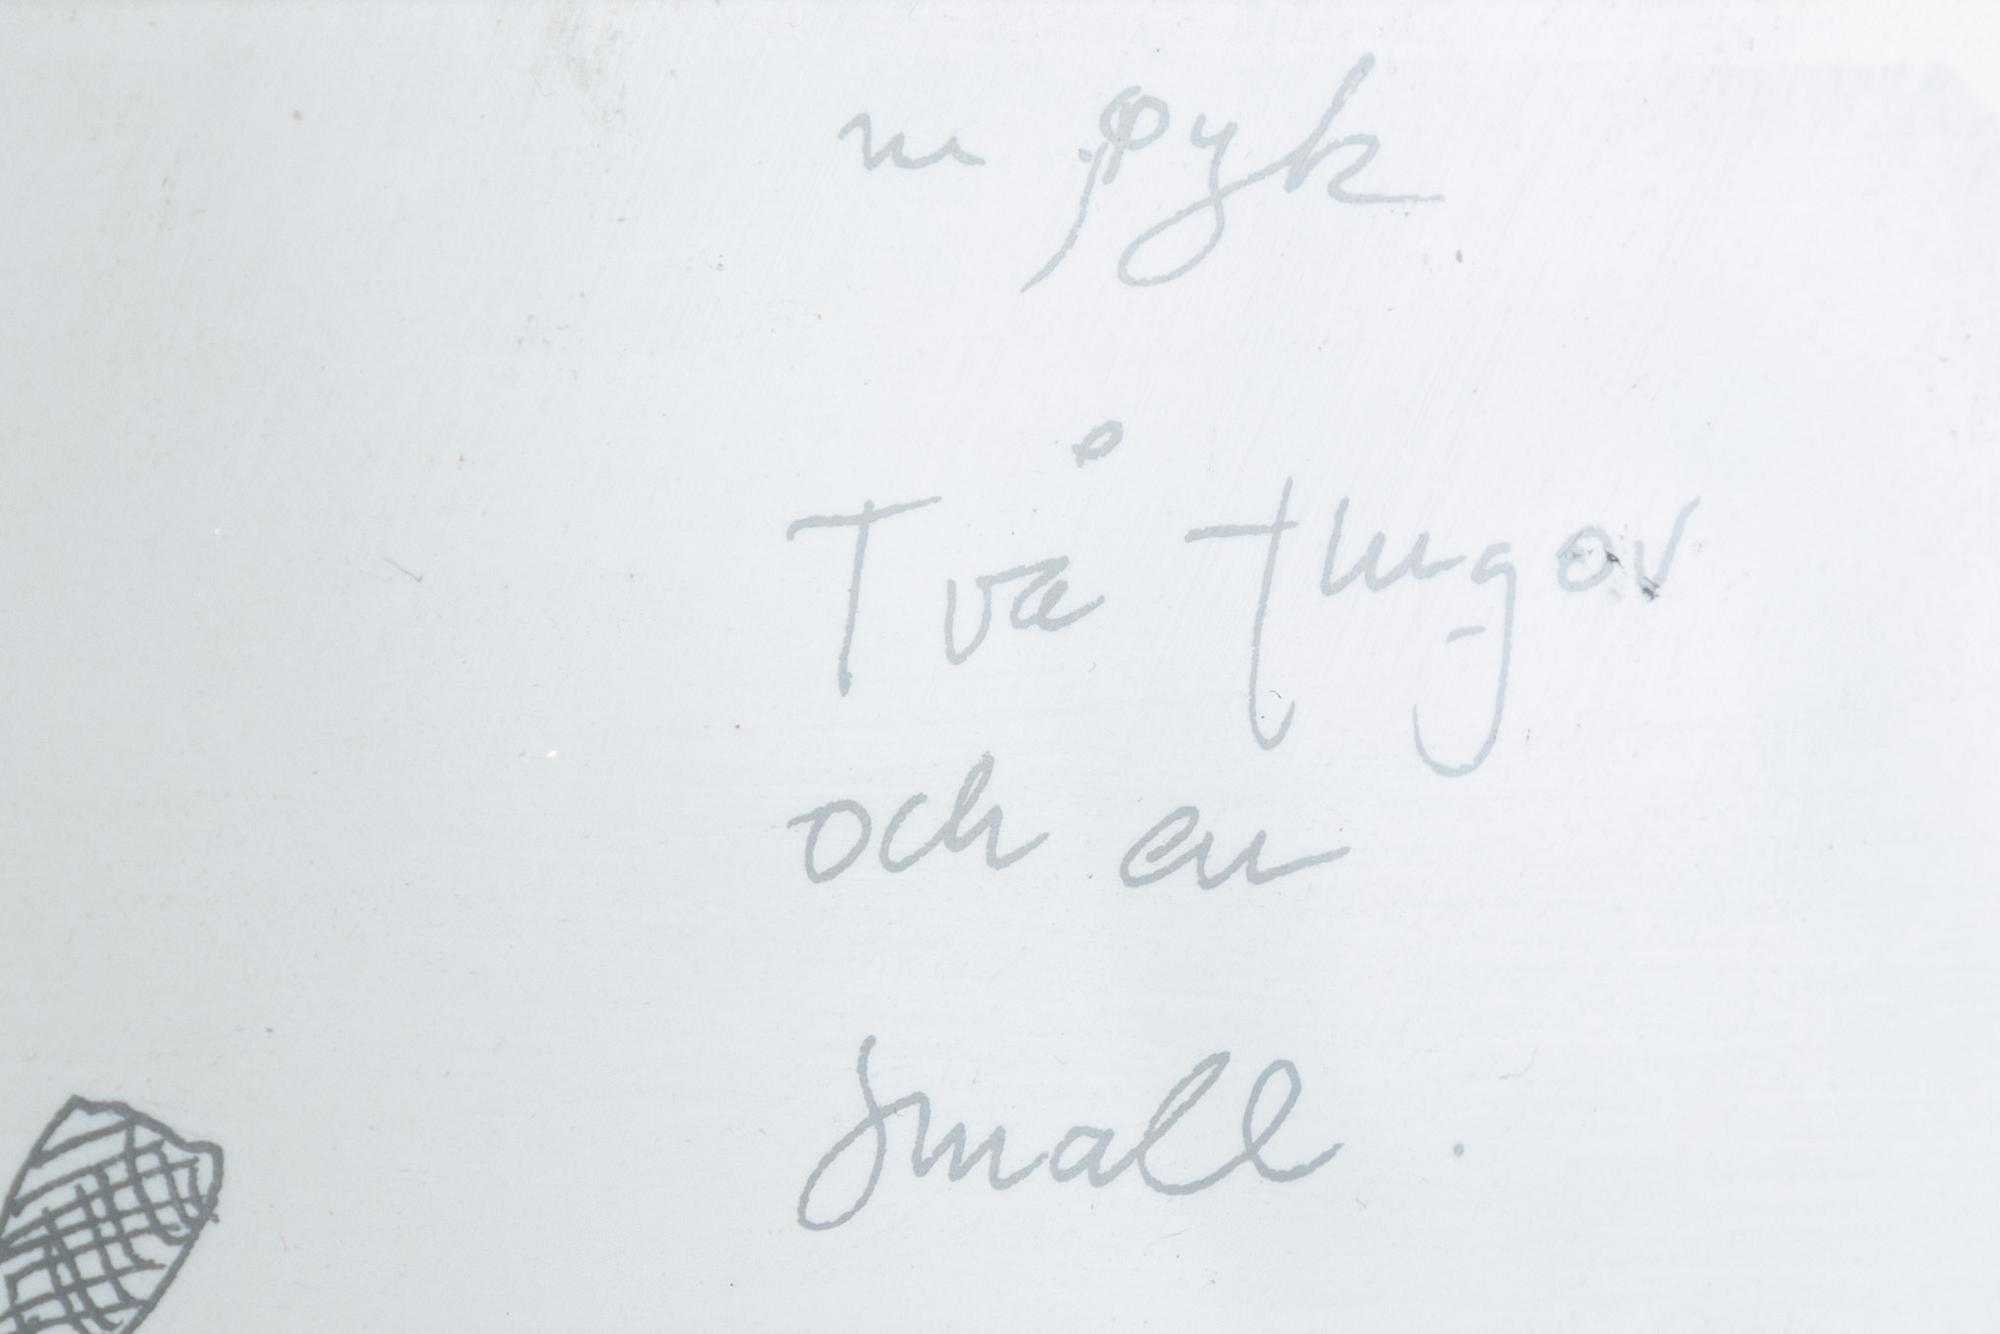 Två flugor
och en
small.